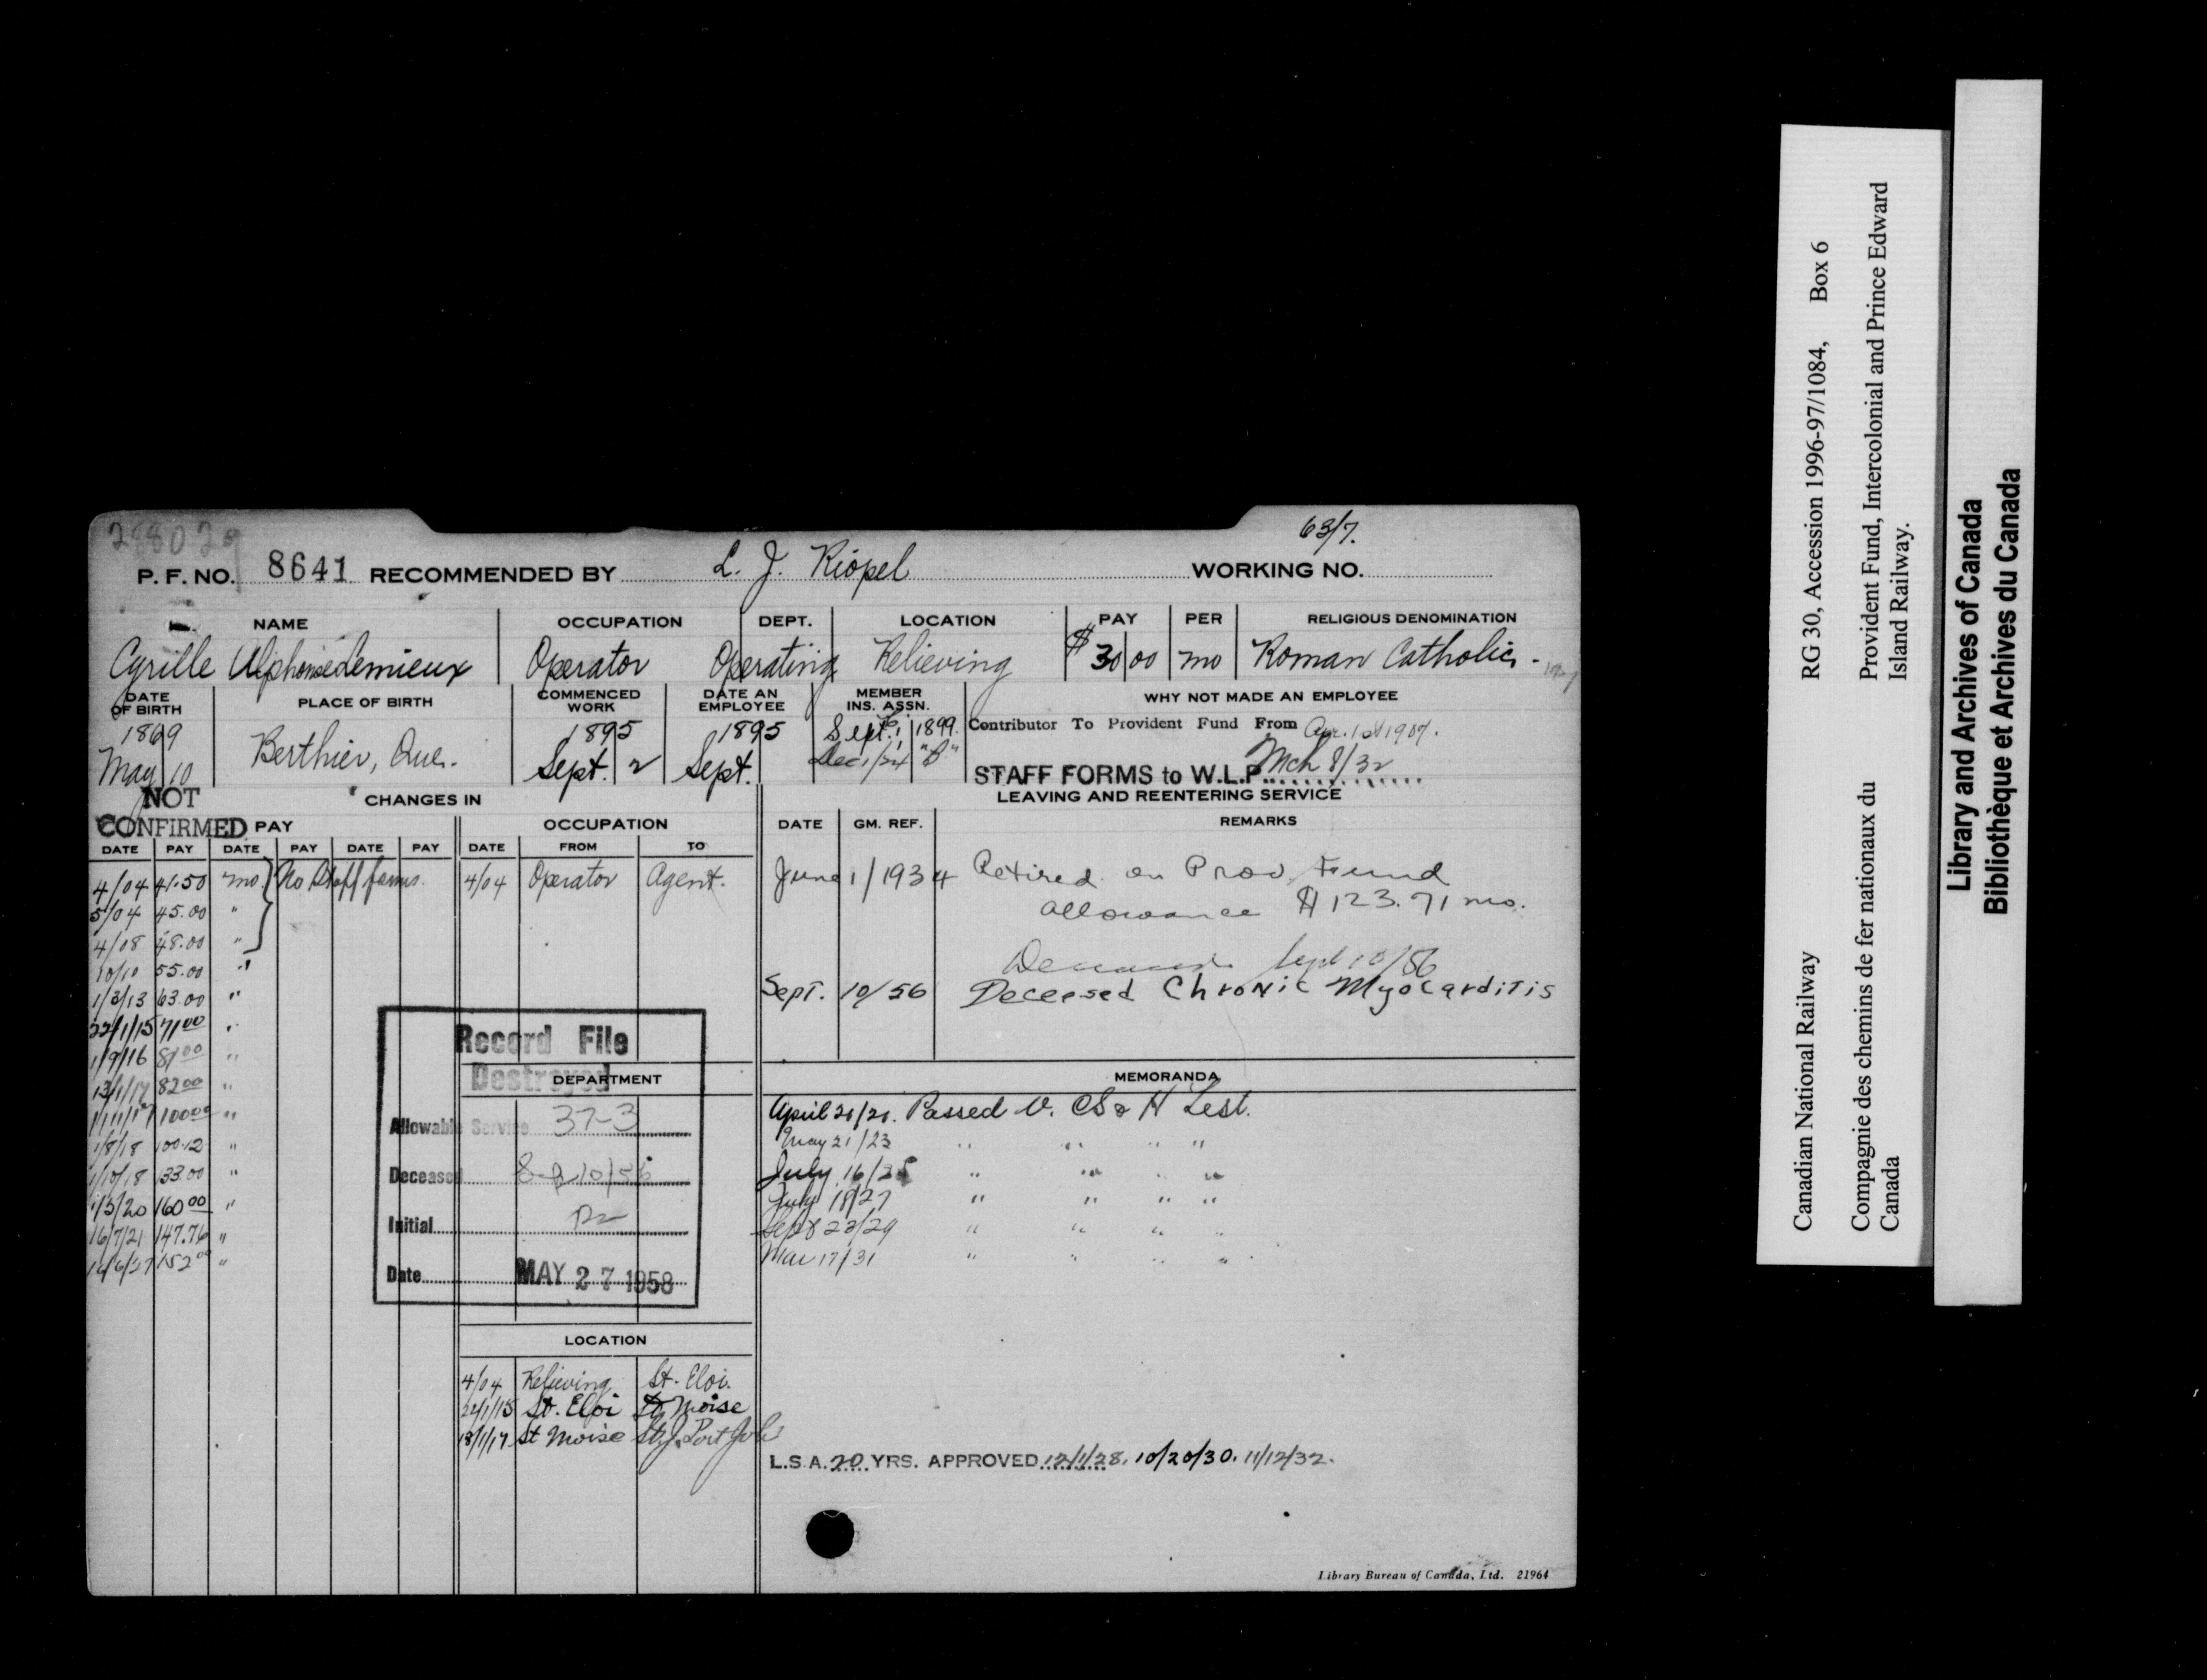 288029
63/7.
P. F. NO. 8641 RECOMMENDED BY L. J. Riopel WORKING NO.
NAME OCCUPATION DEPT. LOCATION PAY PER RELIGIOUS DENOMINATION
Cyrille Alphonse Lemieux Operator Operating Relieving $30 00 mo Roman Catholic -
DATE OF BIRTH PLACE OF BIRTH COMMENCED WORK DATE AN EMPLOYEE MEMBER INS. ASSN. WHY NOT MADE AN EMPLOYEE
1869 May 10 Berthier, Que. 1895 Sept. 2 1895 Sept. Sept. 1, 1899.
Dec 1/24 "B"
Contributor To Provident Fund From Apr. 1st 1907.
STAFF FORMS to W.L.P. Mch 8/32
NOT CONFIRMED
CHANGES IN
PAY OCCUPATION
DATE PAY DATE PAY DATE PAY DATE FROM TO
4/04 41.50 mo } No Staff forms. 4/04 Operator Agent.
5/04 45.00 "
4/08 48.00 "
10/10 55.00 "
1/3/13 63.00 "
22/1/15 71 00 "
1/9/16 81 00 "
13/1/17 82 00 "
1/11/17 100 00 "
1/8/18 100.12 "
1/10/18 133.00 "
1/5/20 160 00 "
16/7/21 147.76 "
16/6/27 152 00 "
LEAVING AND REENTERING SERVICE
DATE GM. REF. REMARKS
June 1/1934 Retired on Prov. Fund
allowance $123.71 mo.
Deceased Sept 10/56
Sept. 10/56 Deceased Chronic Myocarditis
Record File
Destroyed
DEPARTMENT
Allowable Service 37-3
Deceased Sep 10/56
Initial
Date MAY 27 1958
MEMORANDA
April 20/21. Passed V. CS & H Test.
May 21/23 " " " "
July 16/25 " " " "
July 18/27 " " " "
Sept 23/29 " " " "
Mar 17/31 " " " "
LOCATION
4/04 Relieving St. Eloi.
22/1/15 St. Eloi St Moise
13/1/17 St Moise St. J. Port Joli
L.S.A. 20 YRS. APPROVED 12/1/28, 10/20/30. 11/12/32.
Library Bureau of Canada, Ltd. 21964
Canadian National Railway RG 30, Accession 1996-97/1084, Box 6
Compagnie des chemins de fer nationaux du Canada
Provident Fund, Intercolonial and Prince Edward Island Railway.
Library and Archives of Canada
Bibliothèque et Archives du Canada